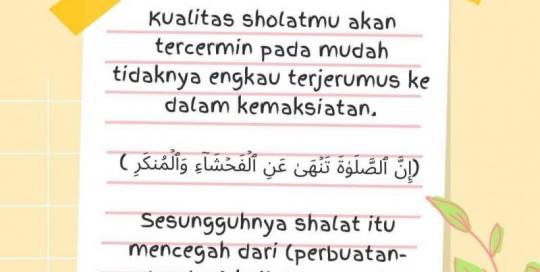 Kualitas sholatmu akan
tercermin pada mudah
tidaknya engkau terjerumus ke
dalam kemaksiatan.
(إِنَّ ٱلصَّلَوٰةَ تَنْهَىٰ عَنِ ٱلْفَحْشَآءِ وَٱلْمُنكَرِ )
Sesungguhnya shalat itu
mencegah dari (perbuatan-